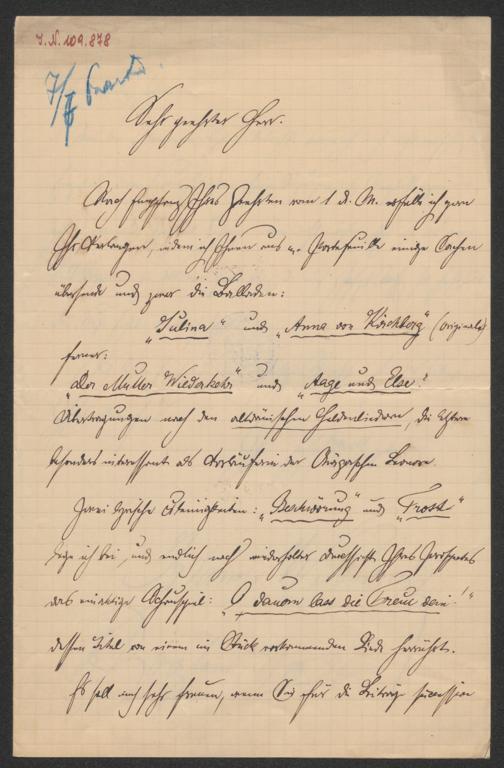 I.N. 109.878
7/5
Sehr geehrter Herr.
Nach Empfang Ihres Geehrten vom 1 d. M. erfülle ich gern
Ihr Verlangen, indem ich Ihnen aus m. Portefeuille einige Sachen
übersende und zwar die Balladen:
"Sulina" und "Anna von Kirchberg" (Originale)
ferner:
"Der Mutter Wiederkehr" und "Aage und Else"
Übertragungen nach den altdänischen Heldenliedern, die letztere
besonders interessant als Vorläuferin der Bürgerschen Leonore.
Zwei lyrische Kleinigkeiten: "Beschwörung" und "Trost"
lege ich bei, und endlich nach wiederholter Durchsicht Ihres Prospectes
das einaktige Schauspiel: "O dauern lass die Treue dein!"
dessen Titel von einem im Stück vorkommenden Liede herrührt.
Es soll mich sehr freuen, wenn Sie für die Beiträge